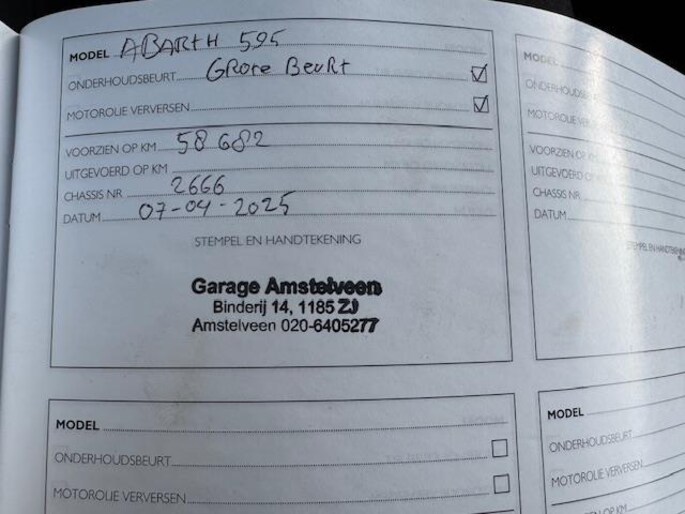 MODEL ABARTH 595
ONDERHOUDSBEURT Grote Beurt
MOTOROLIE VERVERSEN
VOORZIEN OP KM 58 682
UITGEVOERD OP KM
CHASSIS NR 2666
DATUM 07-04-2025
STEMPEL EN HANDTEKENING
Garage Amstelveen
Binderij 14, 1185 ZJ
Amstelveen 020-6405277
MODEL
ONDERHOUDSBEURT
MOTOROLIE VERVERSEN
MODEL
ONDERHOUDS
MOTOROLIE VER
VOORZIEN OP K
UITGEVOERD OP
CHASSIS NR
DATUM
STEMPEL EN HANDTEKEN
MODEL
ONDERHOUDSBEURT
MOTOROLIE VERVERSEN
OP KM